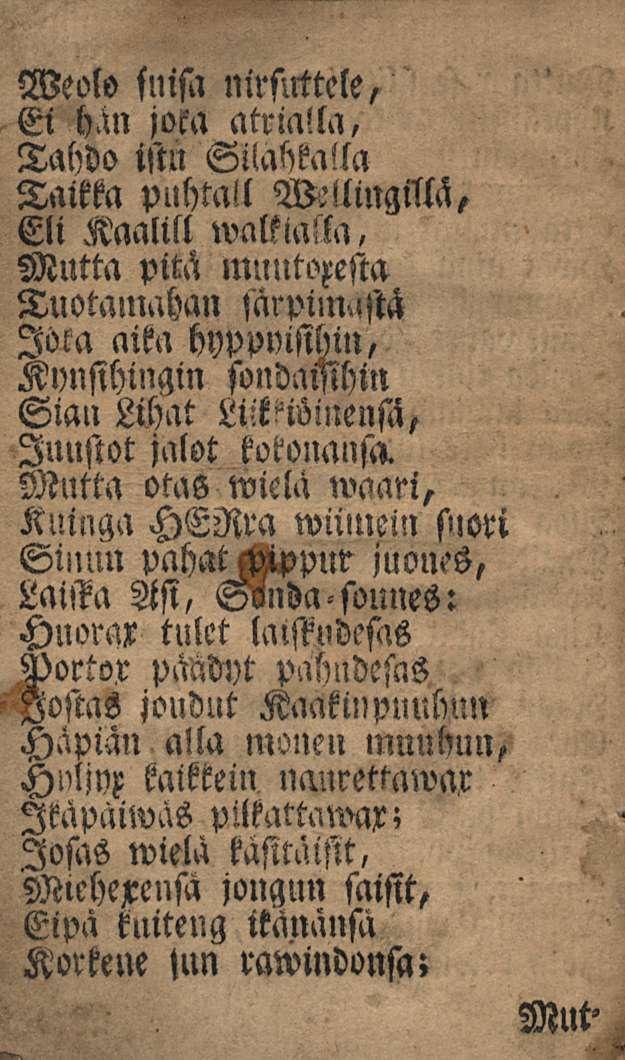 Weolo suisa nirsuttele,
Ei hän joka atrialla,
Tahdo istu Silahkalla
Taikka puhtall Wellingillä,
Eli Kaalill walkialla,
Mutta pitä muutoxesta
Tuotamahan särpimästä
Joka aika hyppyisihin,
Kynsihingin sondaisihin
Sian Lihat Liikkiöinensä,
Juustot jalot kokonansa.
Mutta otas wielä waari,
Kuinga HERra wiimein suori
Sinun pahat pippur juones,
Laiska Asi, Sonda-sounes:
Huorax tulet laiskudesas
Portox päädyt pahudesas
Jostas joudut Kaakinpuuhun
Häpiän alla monen muuhun,
Hyljyx kaikkein naurettawax
Ikäpäiwäs pilkattawax;
Josas wielä käsitäisit,
Miehexensä jongun saisit,
Eipä kuiteng ikänänsä
Korkene sun rawindonsa;
Mut-